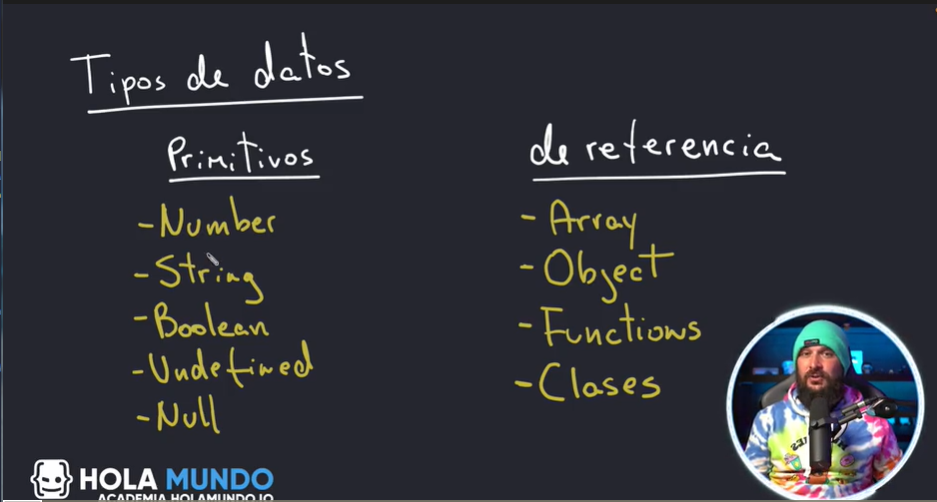 Tipos de datos
Primitivos
- Number
- String
- Boolean
- Undefined
- Null
de referencia
- Array
- Object
- Functions
- Clases
HOLA MUNDO
ACADEMIA.HOLAMUNDO.IO